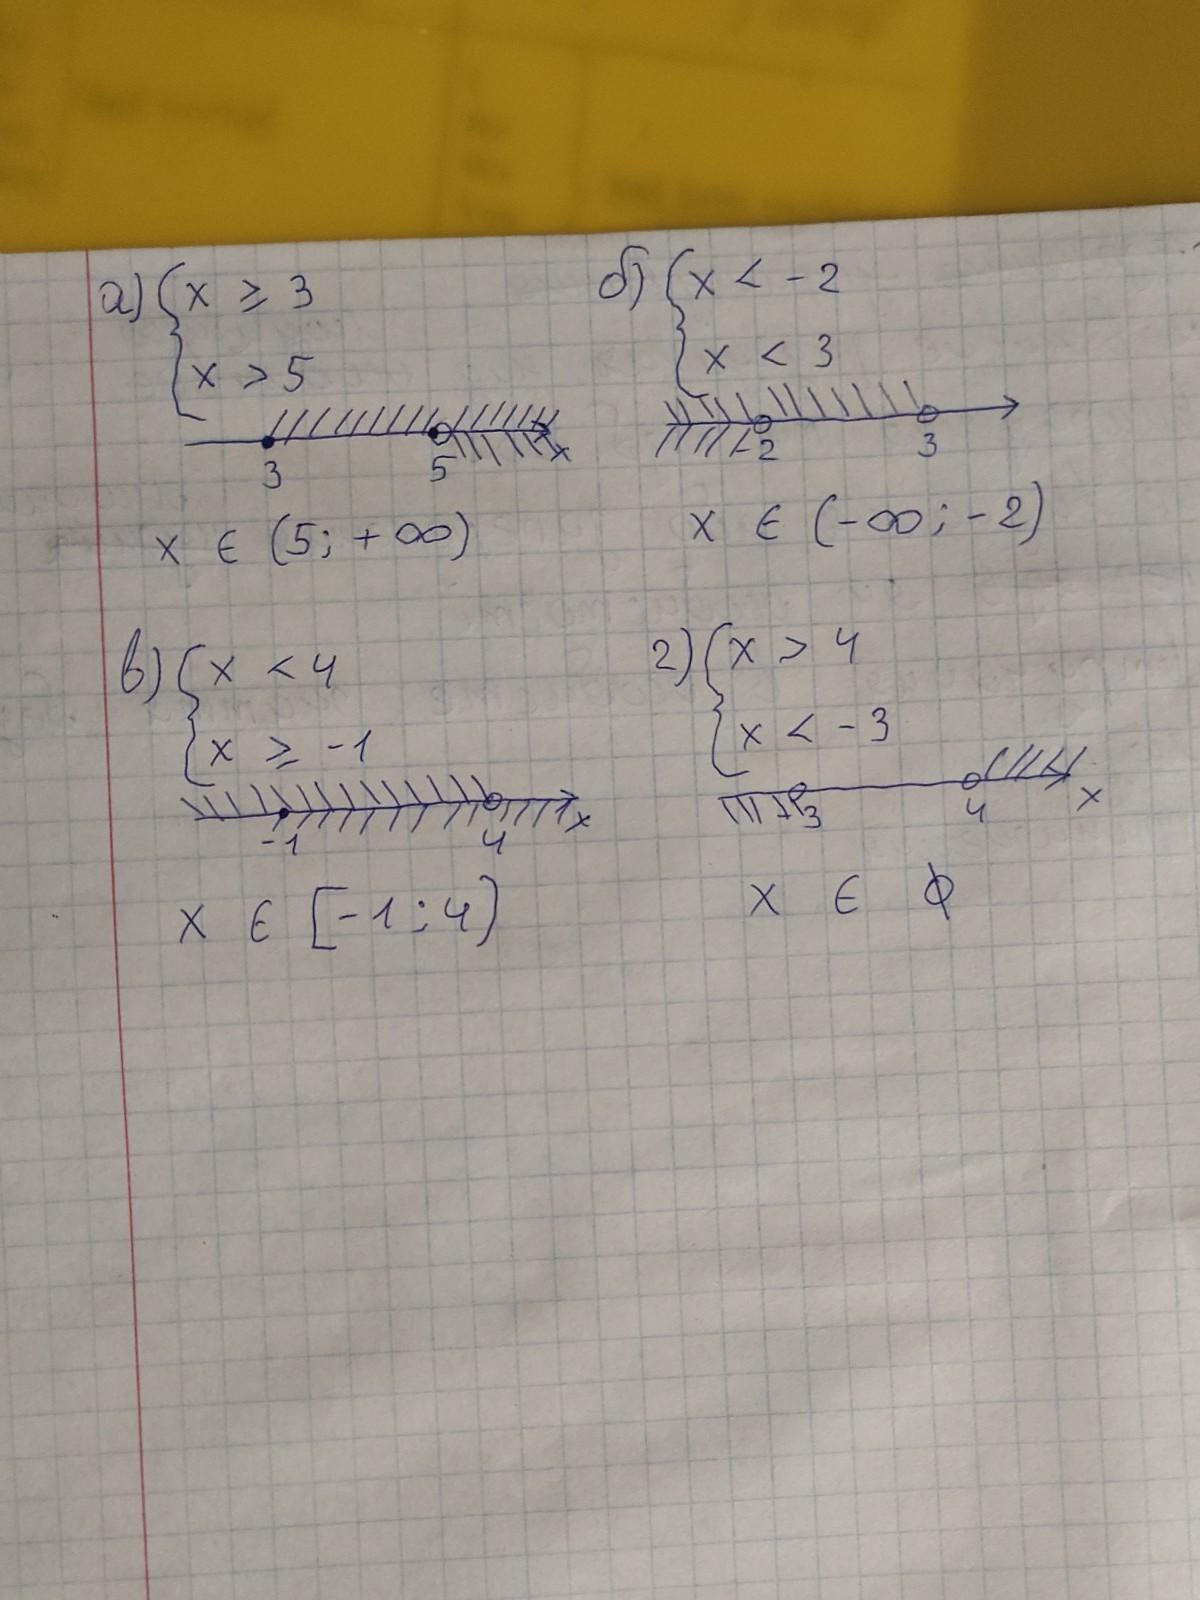 а) { x ≥ 3
x > 5
3 5 x
x ∈ (5; +∞)
б) { x < -2
x < 3
-2 3
x ∈ (-∞; -2)
в) { x < 4
x ≥ -1
-1 4 x
x ∈ [-1; 4)
г) { x > 4
x < -3
-3 4 x
x ∈ ϕ